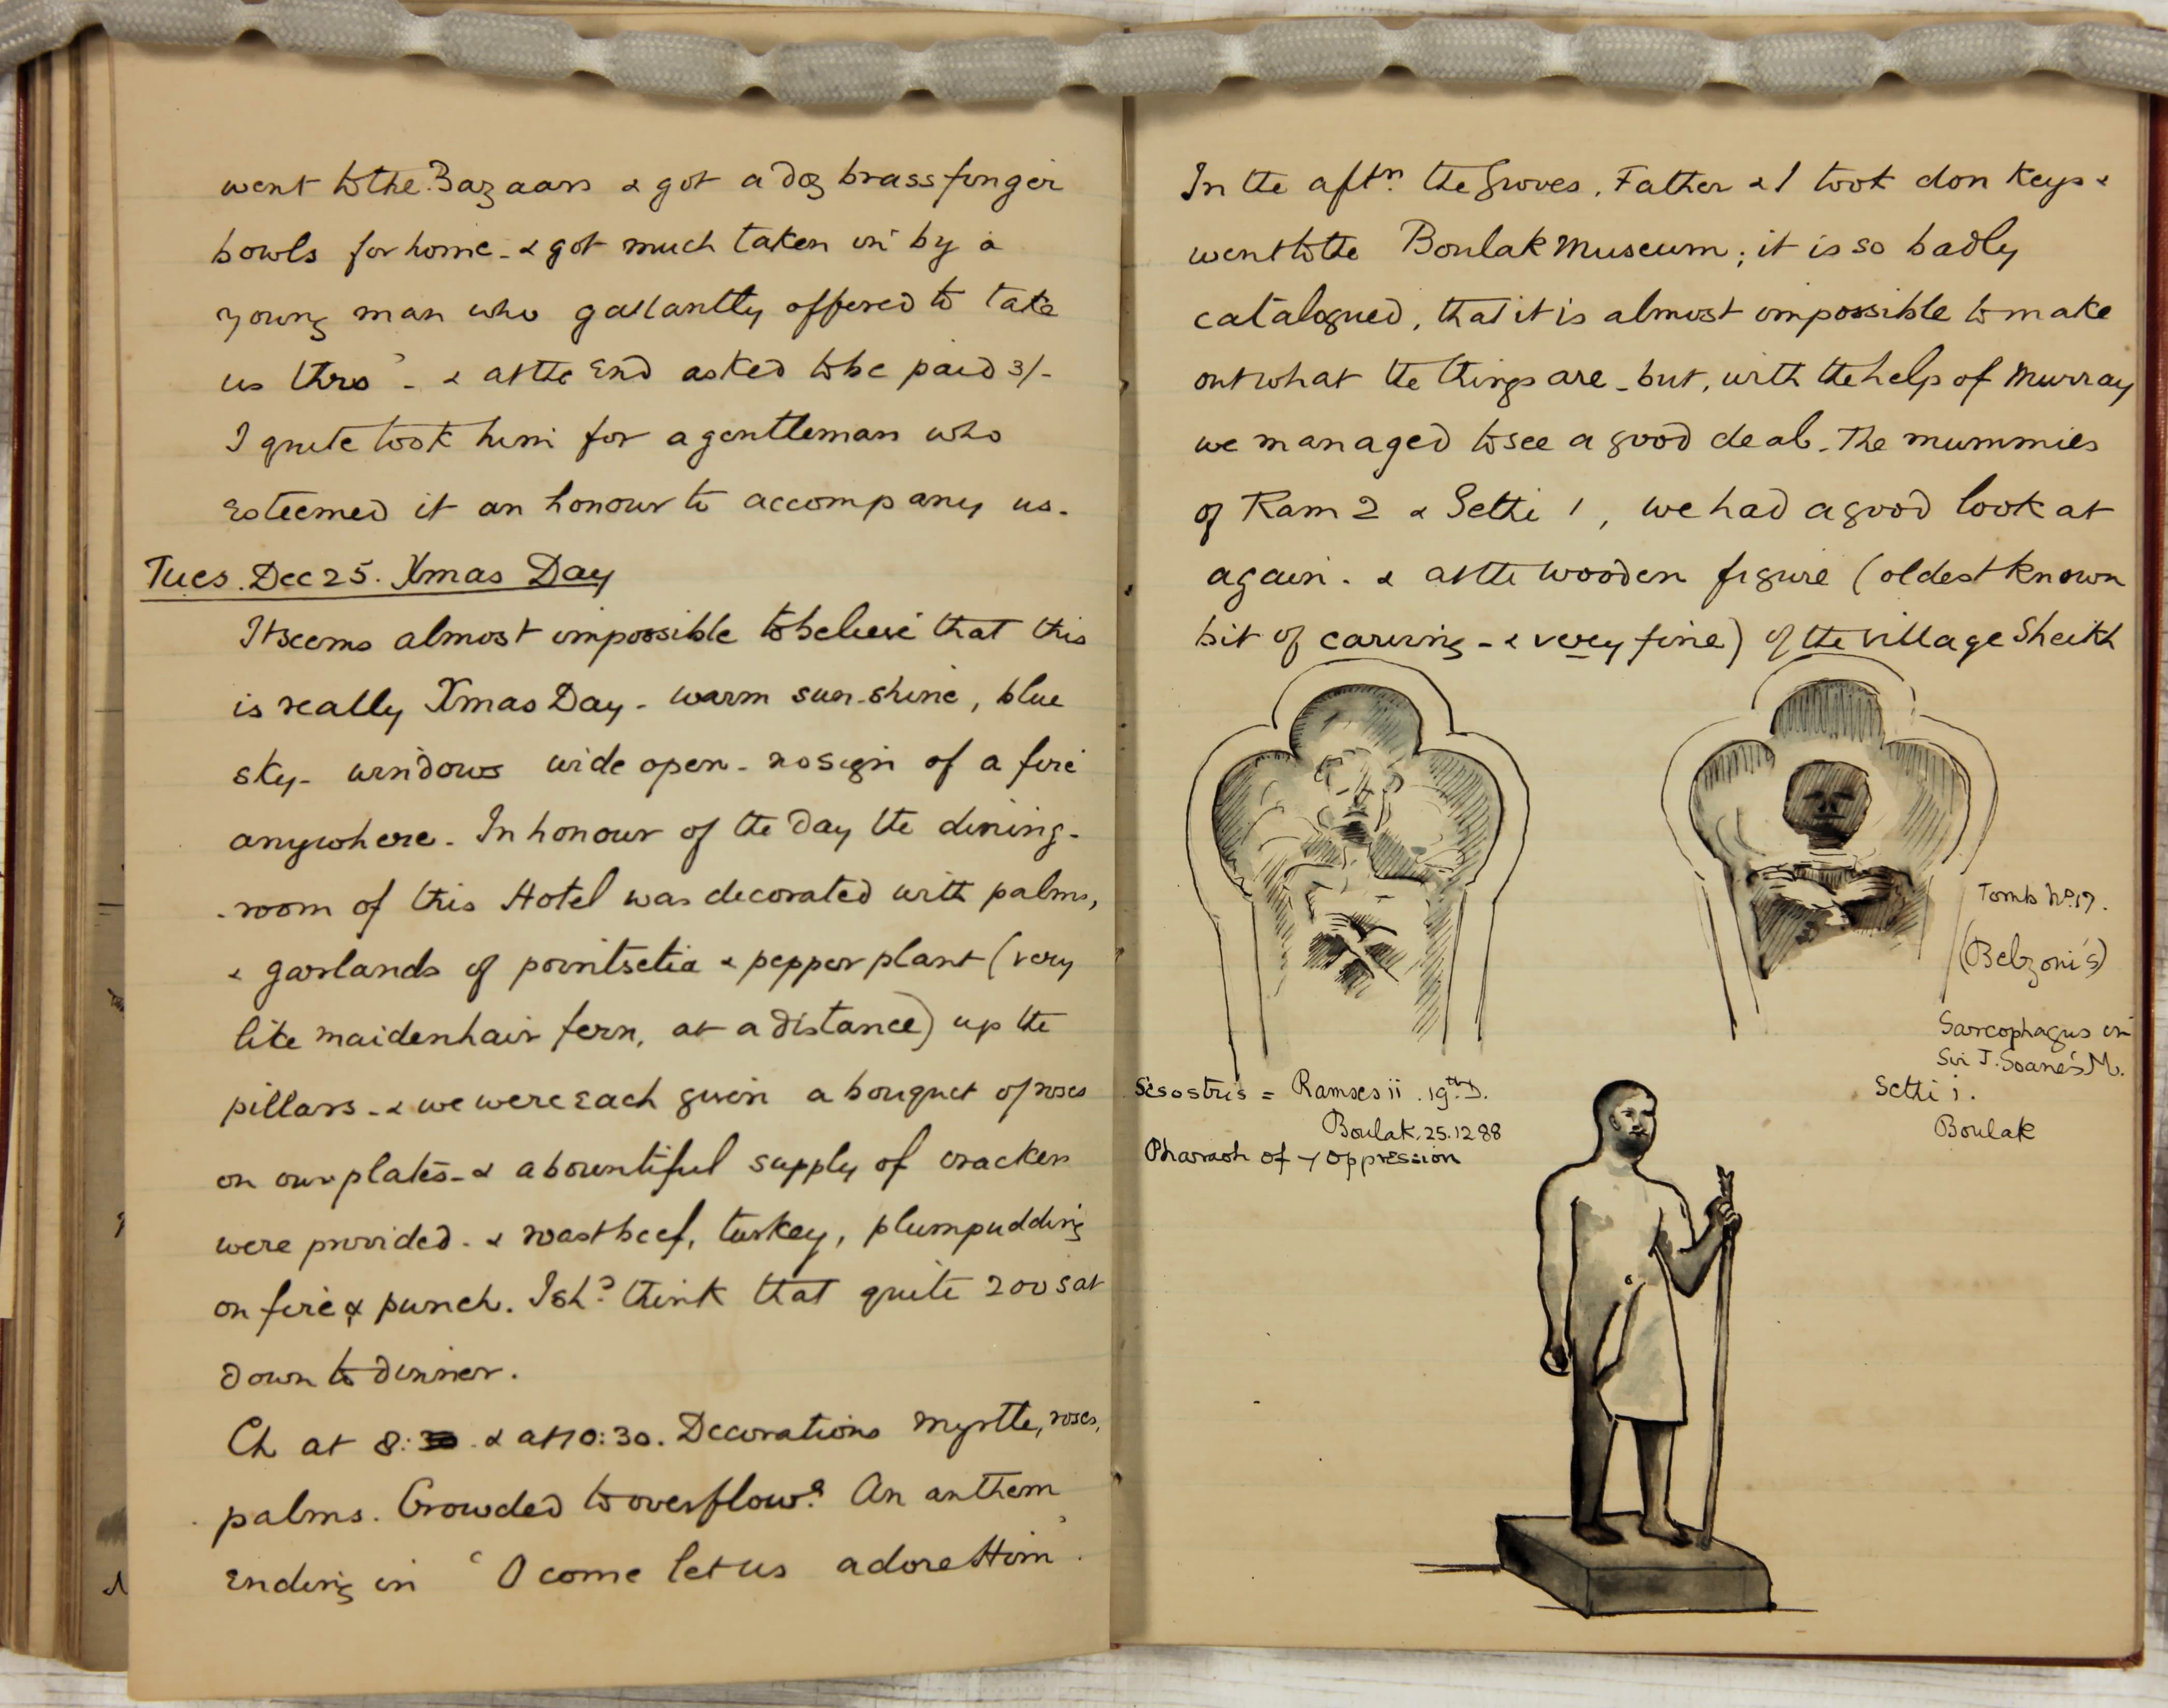 went to the Bazaars & got a doz brass finger
bowls for home - & got much taken in by a
young man who gallantly offered to take
us thro' - & at the end asked to be paid 3/-
I quite took him for a gentleman who
esteemed it an honour to accompany us.
Tues. Dec 25. Xmas Day
It seems almost impossible to believe that this
is really Xmas Day - warm sun-shine, blue
sky - windows wide open - no sign of a fire
anywhere - In honour of the day the dining-
room of this Hotel was decorated with palms,
& garlands of pointsetia & pepper plant (very
like maidenhair fern, at a distance) up the
pillars - & we were each given a bouquet of roses
on our plates - & a bountiful supply of crackers
were provided - & roast beef, turkey, plumpudding
on fire & punch. I shd think that quite 200 sat
down to dinner.
Ch at 8:30 & at 10:30. Decorations myrtle, roses,
palms. Crowded to overflowg. An anthem
ending in 'O come let us adore Him'.
In the aftn. the Groves, Father & I took donkeys &
went to the Boulak Museum; it is so badly
catalogued, that it is almost impossible to make
out what the things are - but, with the help of Murray
we managed to see a good deal. The mummies
of Ram 2 & Sethi 1, we had a good look at
again. & at the wooden figure (oldest known
bit of carving - & very fine) of the village Sheikh
Tomb No. 17.
(Belzoni's)
Sarcophagus in
Sir J. Soane's M.
Sethi i.
Boulak
Sesostris = Ramses ii. 19th D.
Boulak. 25.12 88
Pharaoh of y Oppression